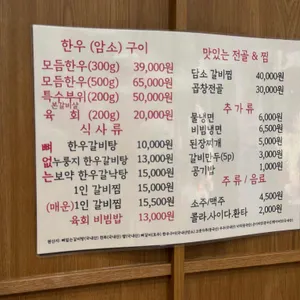 한우 (암소) 구이
모듬한우(300g) 39,000원
모듬한우(500g) 65,000원
특수부위(200g) 50,000원
본갈비살
육 회 (200g) 20,000원
식 사 류
뼈 한우갈비탕 10,000원
없는 누룽지 한우갈비탕 13,000원
보약 한우갈낙탕 15,000원
1인 갈비찜 15,000원
(매운)1인 갈비찜 15,500원
육회 비빔밥 13,000원
맛있는 전골 & 찜
담소 갈비찜 40,000원
곱창전골 30,000원
추 가 류
물냉면 6,000원
비빔냉면 6,500원
된장찌개 5,000원
갈비만두(5p) 3,000원
공기밥 1,000원
주 류 / 음료
소주/맥주 4,500원
콜라.사이다.환타 2,000원